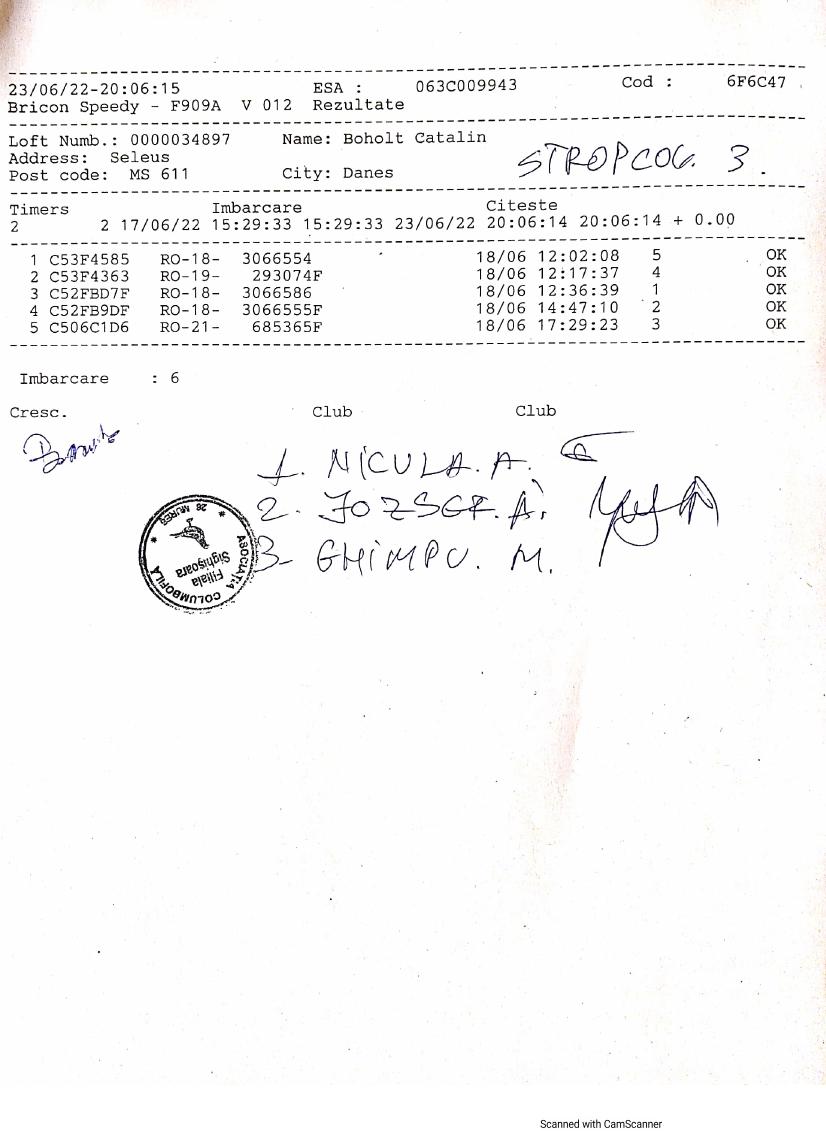 23/06/22-20:06:15 ESA : 063C009943 Cod : 6F6C47
Bricon Speedy - F909A V 012 Rezultate
Loft Numb.: 0000034897 Name: Boholt Catalin
Address: Seleus
Post code: MS 611 City: Danes
STROPCOG. 3.
Timers Imbarcare Citeste
2 2 17/06/22 15:29:33 15:29:33 23/06/22 20:06:14 20:06:14 + 0.00
1 C53F4585 RO-18- 3066554 18/06 12:02:08 5 OK
2 C53F4363 RO-19- 293074F 18/06 12:17:37 4 OK
3 C52FBD7F RO-18- 3066586 18/06 12:36:39 1 OK
4 C52FB9DF RO-18- 3066555F 18/06 14:47:10 2 OK
5 C506C1D6 RO-21- 685365F 18/06 17:29:23 3 OK
Imbarcare : 6
Cresc. Club Club
1. NICULA. A.
2. JOZSEF. A.
3- GHIMPU. M.
ASOCIATIA COLUMBOFILA
Filiala
Sighişoara
* 26 MUREŞ *
Scanned with CamScanner